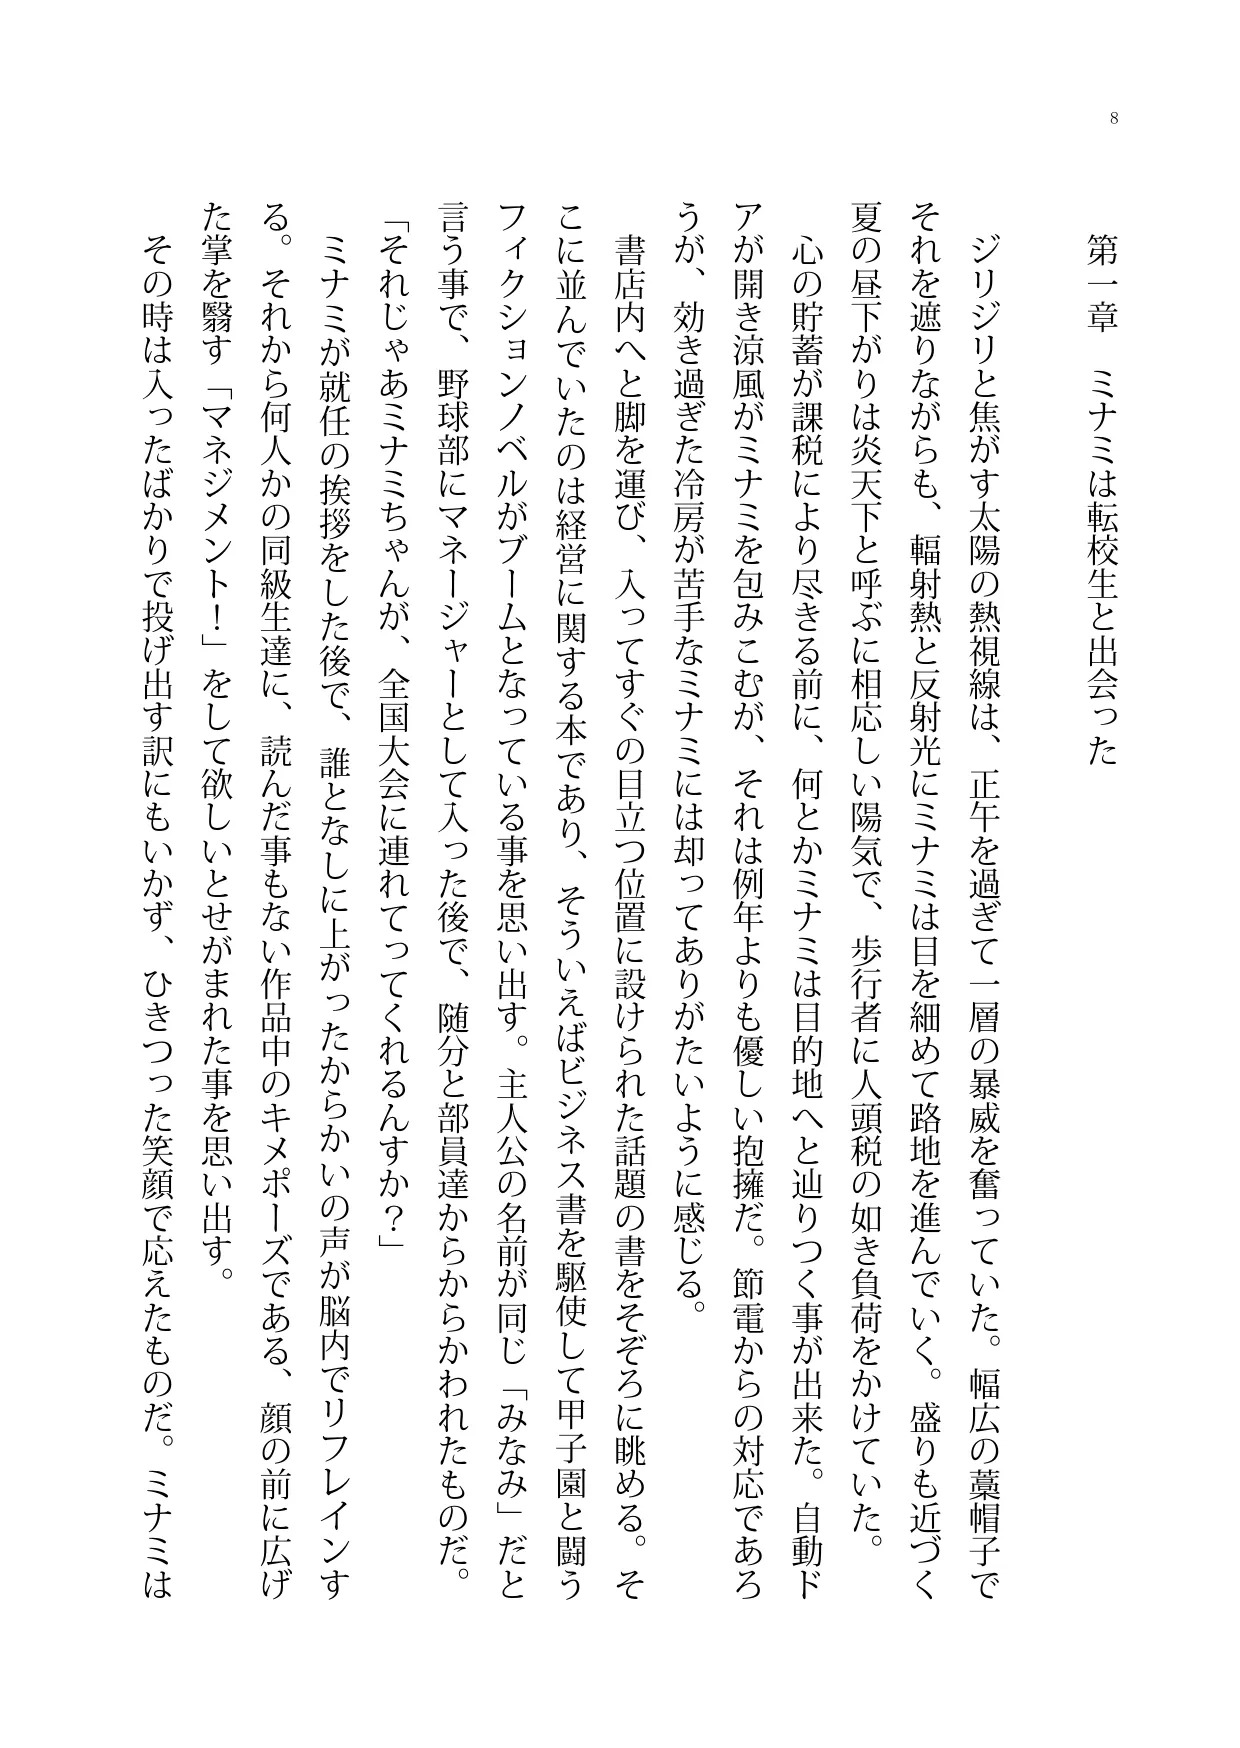 8
第一章　ミナミは転校生と出会った
　ジリジリと焦がす太陽の熱視線は、正午を過ぎて一層の暴威を奮っていた。幅広の藁帽子で
それを遮りながらも、輻射熱と反射光にミナミは目を細めて路地を進んでいく。盛りも近づく
夏の昼下がりは炎天下と呼ぶに相応しい陽気で、歩行者に人頭税の如き負荷をかけていた。
　心の貯蓄が課税により尽きる前に、何とかミナミは目的地へと辿りつく事が出来た。自動ド
アが開き涼風がミナミを包みこむが、それは例年よりも優しい抱擁だ。節電からの対応であろ
うが、効き過ぎた冷房が苦手なミナミには却ってありがたいように感じる。
　書店内へと脚を運び、入ってすぐの目立つ位置に設けられた話題の書をそぞろに眺める。そ
こに並んでいたのは経営に関する本であり、そういえばビジネス書を駆使して甲子園と闘う
フィクションノベルがブームとなっている事を思い出す。主人公の名前が同じ「みなみ」だと
言う事で、野球部にマネージャーとして入った後で、随分と部員達からからかわれたものだ。
「それじゃあミナミちゃんが、全国大会に連れてってくれるんすか？」
　ミナミが就任の挨拶をした後で、誰となしに上がったからかいの声が脳内でリフレインす
る。それから何人かの同級生達に、読んだ事もない作品中のキメポーズである、顔の前に広げ
た掌を翳す「マネジメント！」をして欲しいとせがまれた事を思い出す。
　その時は入ったばかりで投げ出す訳にもいかず、ひきつった笑顔で応えたものだ。ミナミは